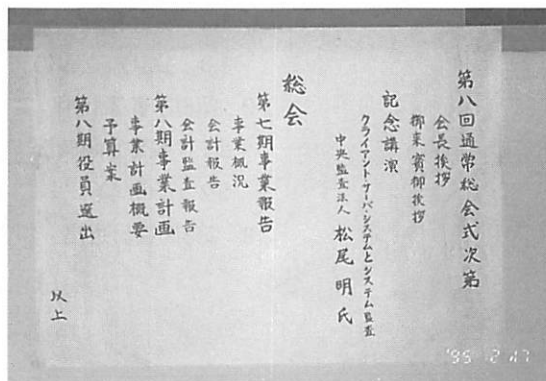 第八回通常総会式次第
会長挨拶
御来賓御挨拶
記念講演
クライアント・サーバ・システムとシステム監査
中央監査法人 松尾 明 氏
総会
第七期事業報告
事業概況
会計報告
会計監査報告
第八期事業計画
事業計画概要
予算案
第八期役員選出
以上